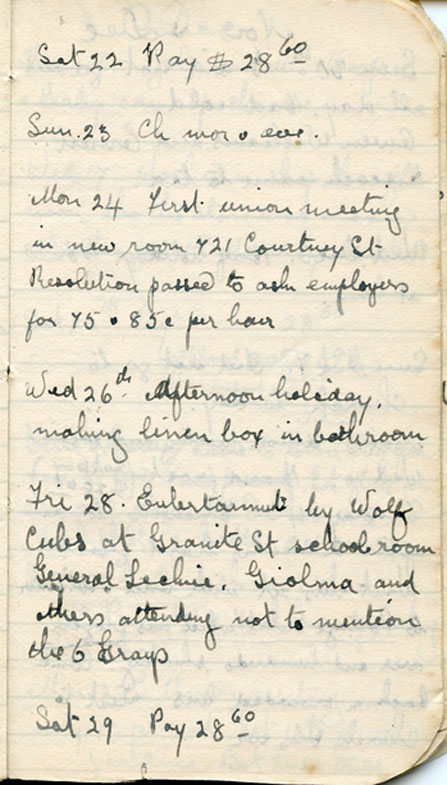 Sat 22 Pay $ 28 60
Sun. 23 Ch mor & eve.
Mon 24 First union meeting
in new room 721 Courtney St
Resolution passed to ask employers
for 75 & 85c per hour
Wed 26th Afternoon holiday.
making linen box in bathroom
Fri 28. Entertainment by Wolf
Cubs at Granite St schoolroom
General Leckie. Giolma and
others attending not to mention
the 6 Grays
Sat 29 Pay 28 60